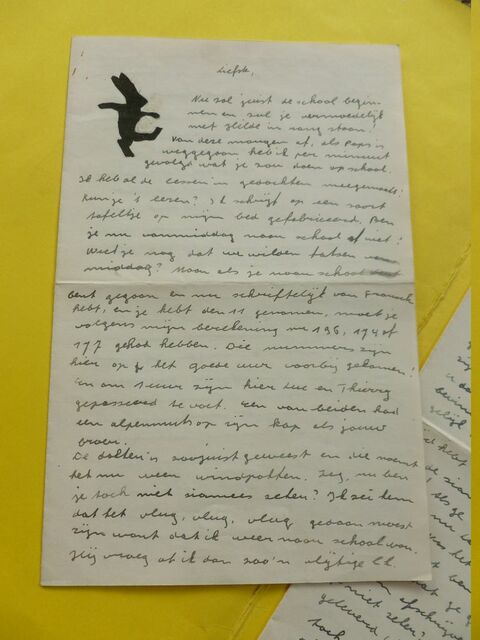 Liefste,
Nu zal juist de school begin-
nen en zul je vermoedelijk
met Hilde in rang staan!
Van deze morgen af, als Paps is
weggegaan heb ik per minuut
gevolgd wat je zou doen op school.
Ik heb al de lessen in gedachten meegemaakt.
Kun je 't lezen? Ik schrijf op een soort
tafeltje op mijn bed gefabriceerd. Ben
je nu vanmiddag naar school of niet?
Weet je nog dat we wilden fatsen
middag? Maar als je naar school
bent gegaan en nu schriftelijk van Fransch
hebt, en je hebt den 11 genomen, moet je
volgens mijn berekening nr 196, 174 of
177 gehad hebben. Die nummers zijn
hier op het goede uur voorbij gekomen!
En om 1 uur zijn hier Luc en Thierry
gepasseerd te voet. Een van beiden had
een alpenmuts op zijn kop als jouw
broer.
De dokter is zoojuist geweest en die noemt
het nu weer windpokken. Zeg, nu ben
je toch niet siamees zeker? Ik zei hem
dat het vlug, vlug, vlug gedaan moest
zijn want dat ik weer naar school wou.
Hij vroeg of ik dan zoo'n vlijtige ll.